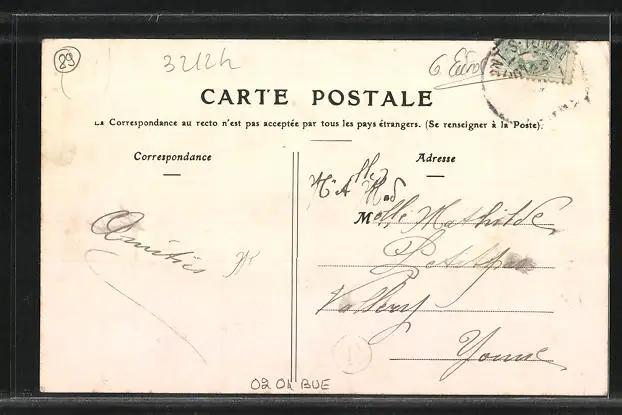 89
32124
6 Euro
CARTE POSTALE
La Correspondance au recto n'est pas acceptée par tous les pays étrangers. (Se renseigner à la Poste).
Correspondance
Adresse
Melle Mathilde
Amitiés
Petitpas
Vallery
Yonne
02 04 BUE